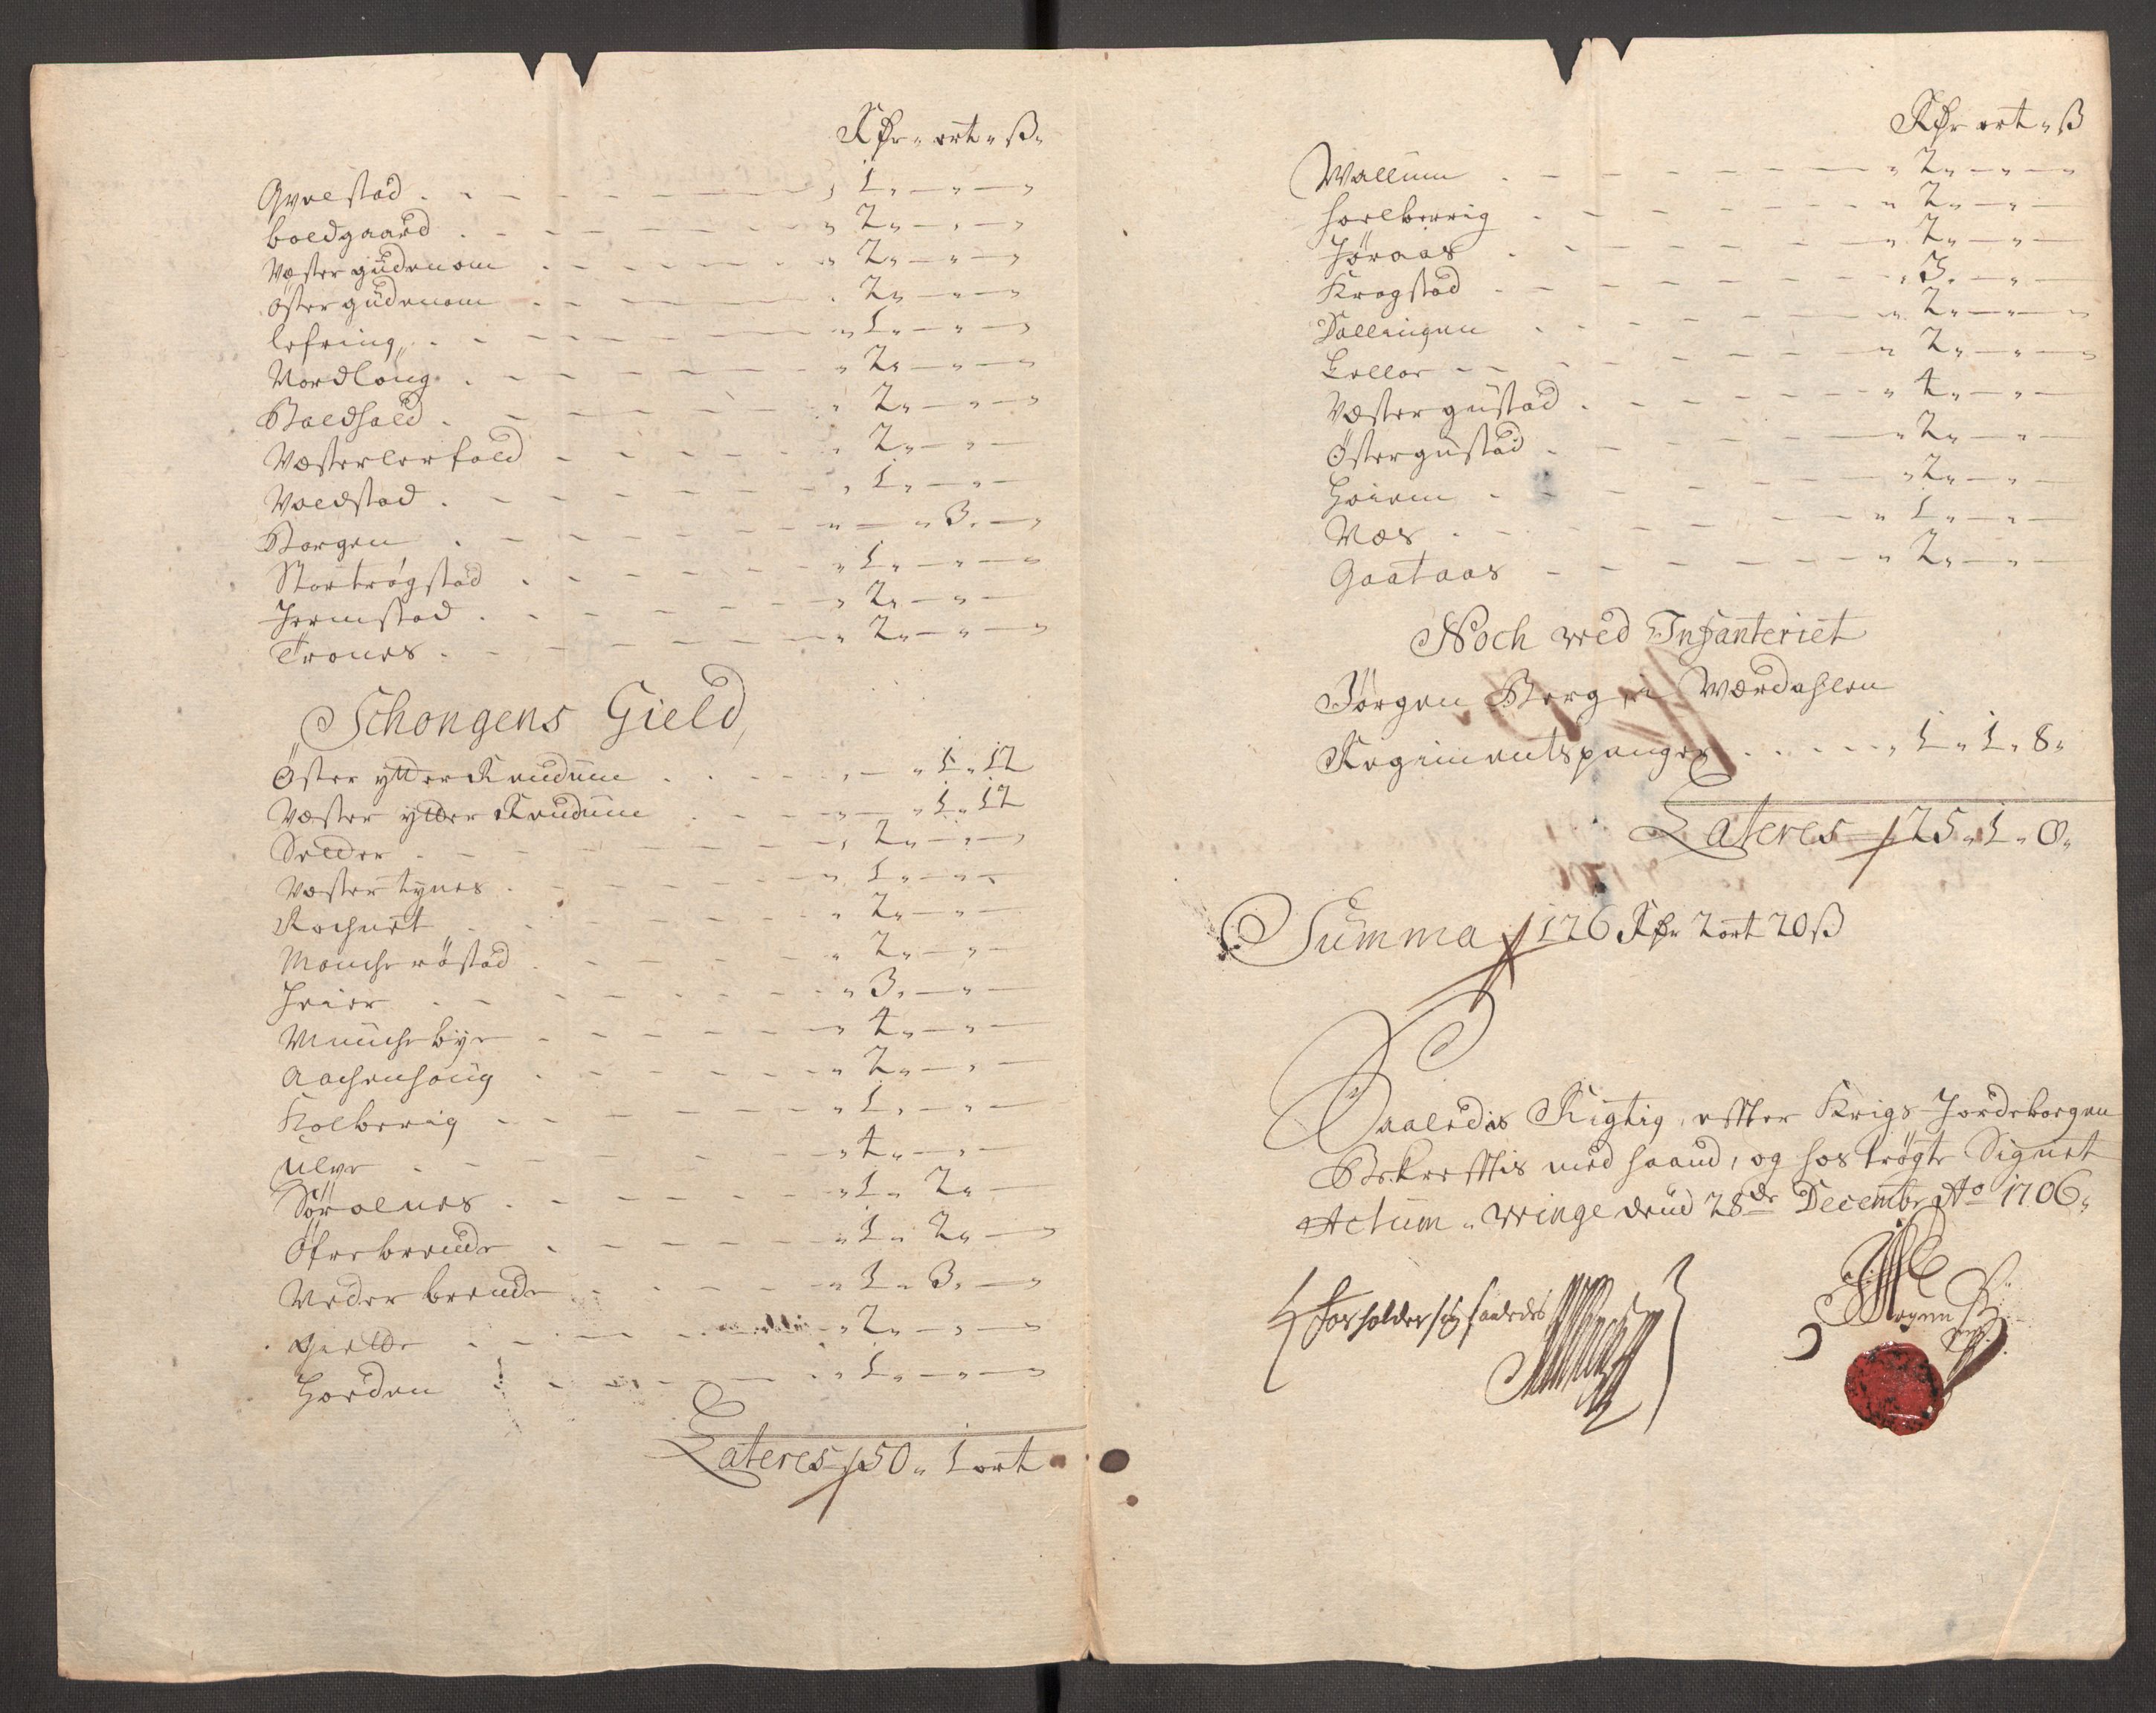 Rdr ort ß
Gvelstad 1
boldgaard 2
Vester güdenom 2
Öster güdenom 2
lefring 1
Nordloug 2
Baldhald 2
Vesterlerfald 2
Voldstad 1
Borgen 3
Stortrögstad 1
Jermstad 2
Trones 2
Schongens Gield
Öster ytter Rendum 1 12
Vester ytter Rendum 1 12
Selder 2
Vester tynes 1
Rochnet 2
Munche röstad 2
Heier 3
Munchebye 4
Aachenhoug 2
Kolberig 1
Ulve 4
Sörolnes 1 2
Öfrebrende 1 2
Neder brende 1 3
Gielde 2
Horden 1
Lateres 50 1 ort
Rdr ort ß
Wallum 2
Holberrig 2
Jöraas 2
Krogstad 3
Dallingen 2
Leller 2
Vester güstad 4
Östergüstad 2
Hoiem 2
Nes 1
Gaataas 2
Noch wed Infanteriet
Jörgen Berg i Werdahlen
Regimentspenger 1 1 8
Lateres 25 1 0
Summa 126 Rdr 2 ort 20 ß
Saaledis Rigtig, effter Krigs Jordebogen
Bekrefftis med haand, og hos trögte Signet
Actum Winge dend 28de Decembr Ao 1706
forholder sig saaledis